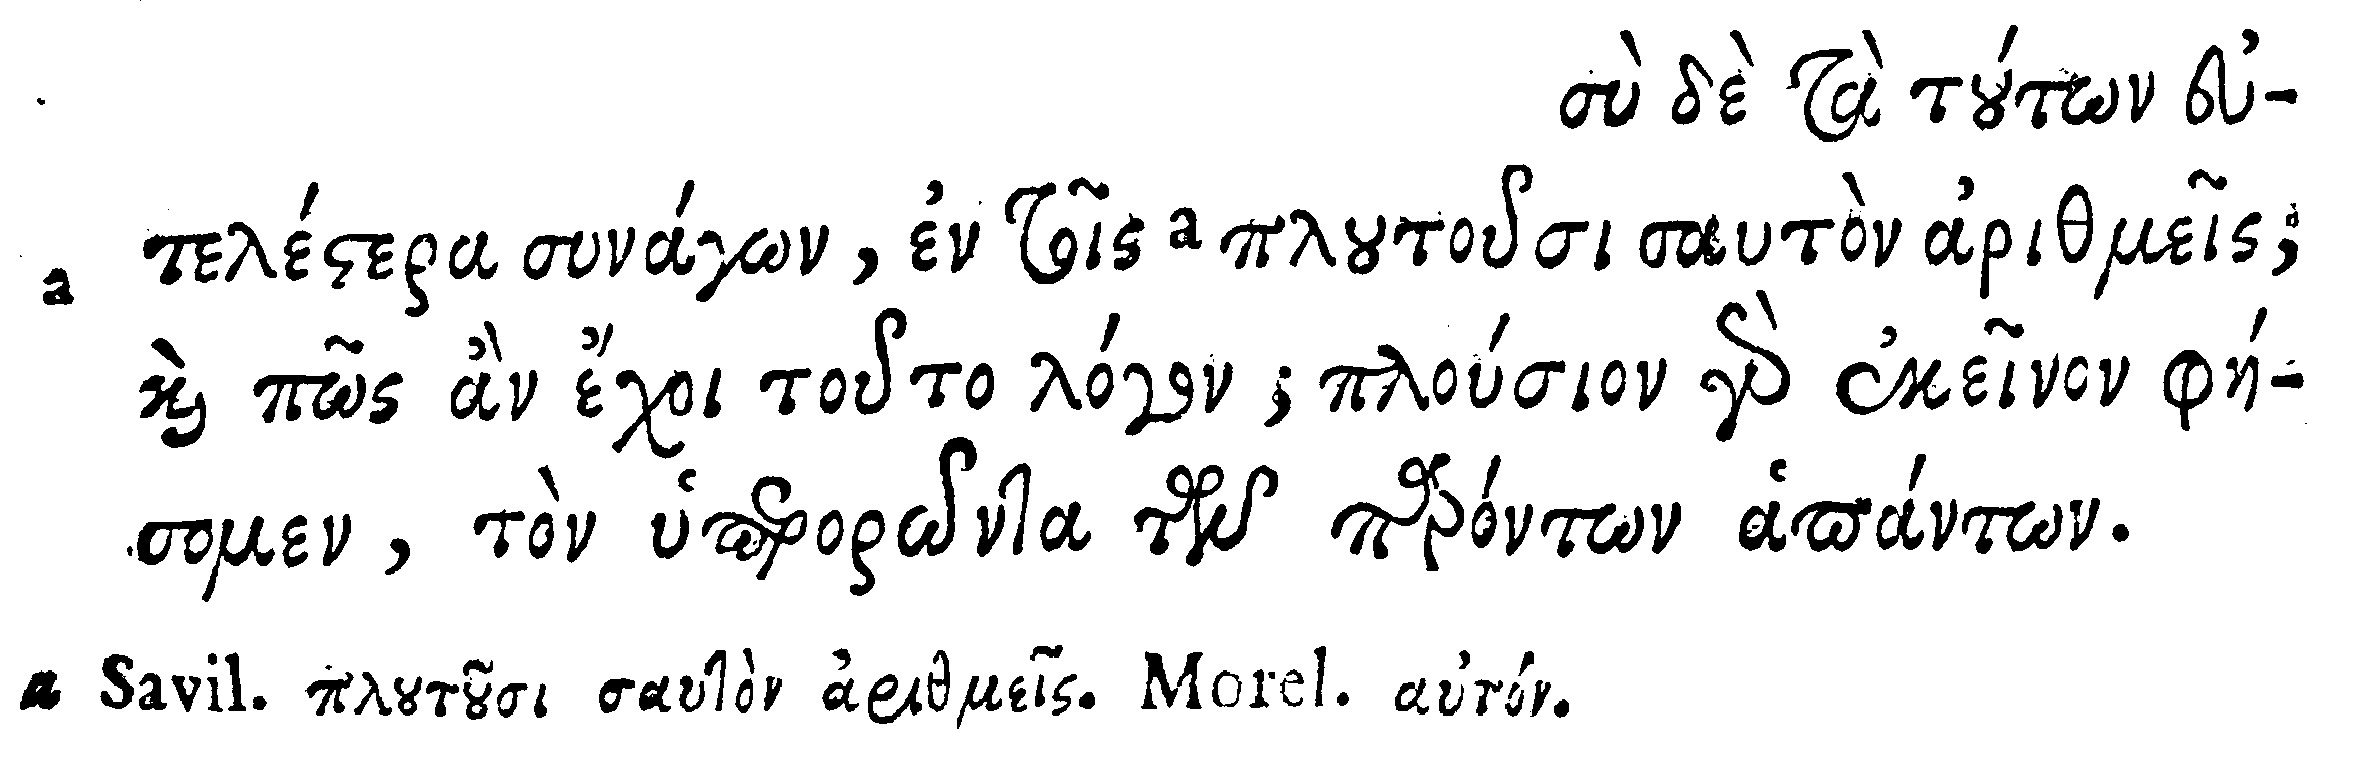 σὺ δὲ τὰ τούτων εὐ-
τελέστερα συνάγων, ἐν τοῖς a πλουτοῦσι σαυτὸν ἀριθμεῖς;
a
καὶ πῶς ἂν ἔχοι τοῦτο λόγον; πλούσιον γὰρ ἐκεῖνον φή-
σομεν, τὸν ὑπερορῶντα τῶν παρόντων ἁπάντων.
a Savil. πλουτοῦσι σαυτὸν ἀριθμεῖς. Morel. αὐτόν.